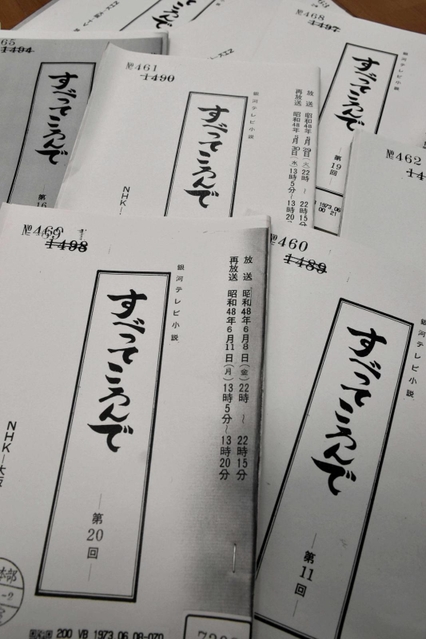 №468
№461
1490
銀河テレビ小説
すべってころんで
NHK
放送 昭和48年5月29日(火)22時
再放送 昭和48年5月30日(水)13時5分
すべってころんで
銀河テレビ小説
すべってころんで
第19回
№462
1498
銀河テレビ小説
すべってころんで
第20回
放送 昭和48年6月8日(金)22時〜22時15分
再放送 昭和48年6月11日(月)13時5分〜13時20分
NHK—大阪
200 VB 1973 06 08-070
№460
1489
銀河テレビ小説
すべってころんで
第11回